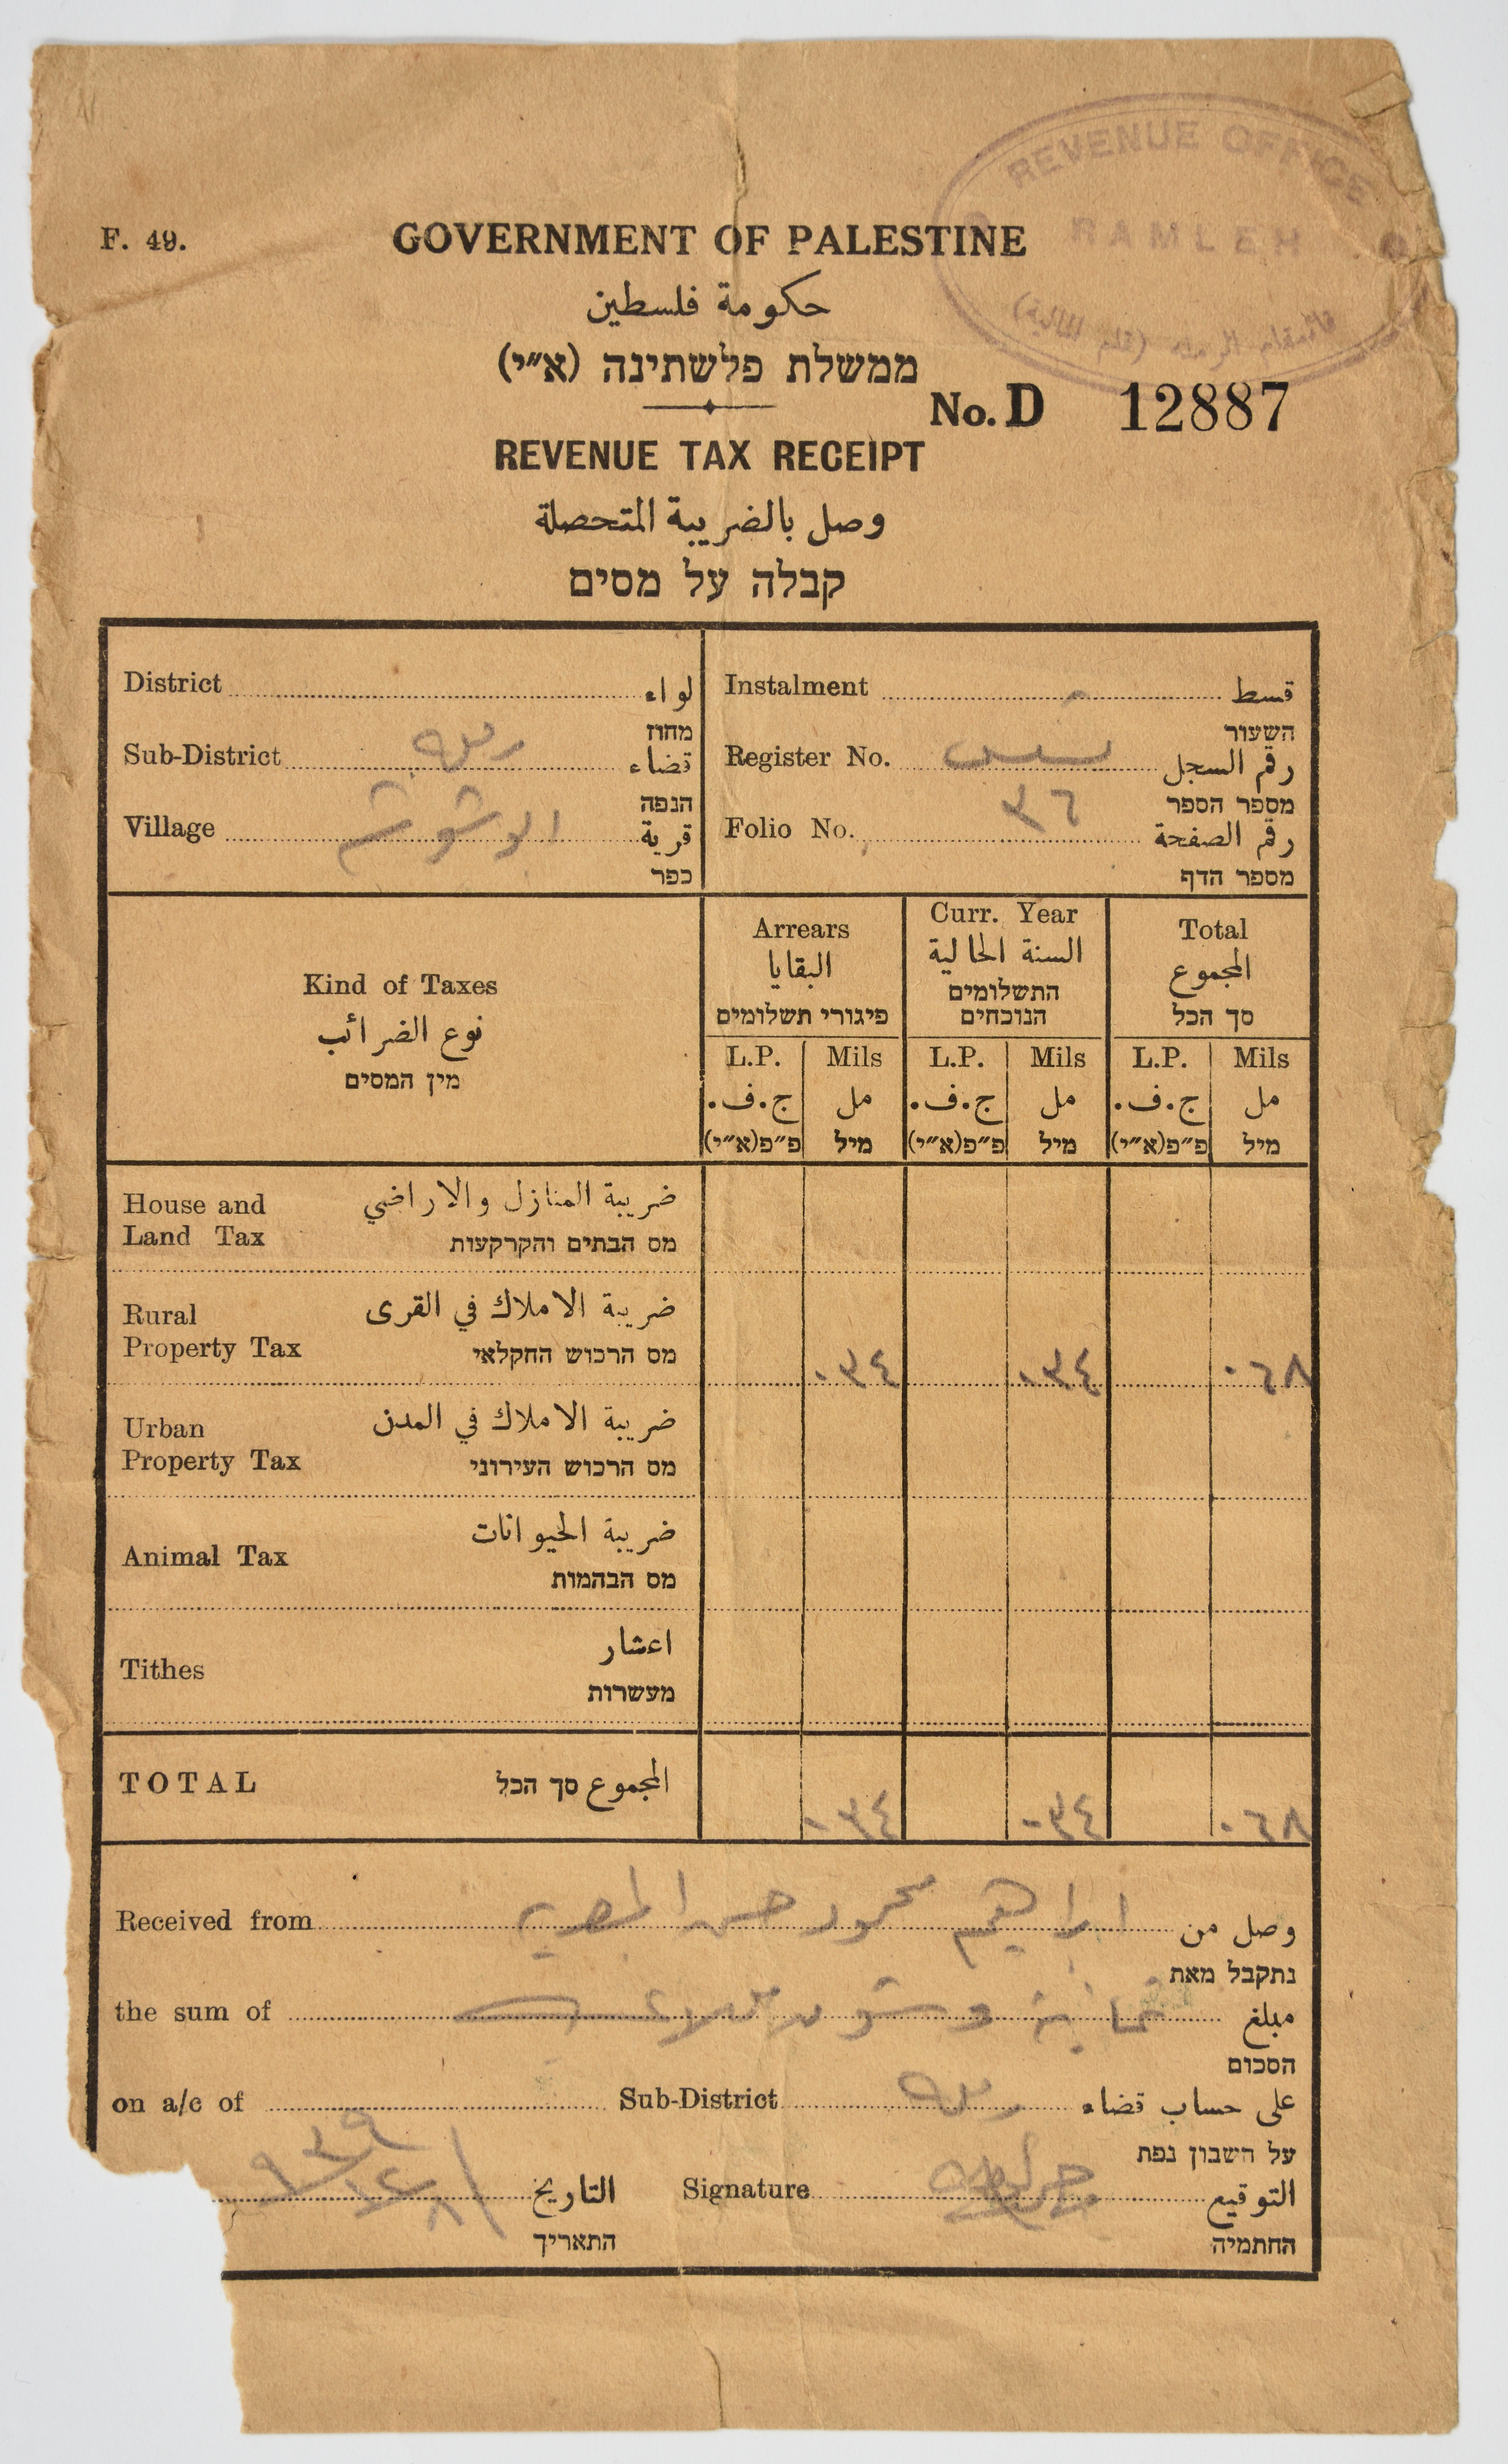 REVENUE OFFICE
RAMLEH
قائمقام الرملة (قلم المالية)
F. 49.
GOVERNMENT OF PALESTINE
حكومة فلسطين
ממשלת פלשתינה (א״י)
No. D 12887
REVENUE TAX RECEIPT
وصل بالضريبة المتحصلة
קבלה על מסים
District لواء
מחוז
Sub-District رملة قضاء
הנפה
Village ابو شوشة قرية
כפר
Instalment قسط
השעור
Register No. رقم السجل
מספר הספר
Folio No. ٣٦ رقم الصفحة
מספר הדף
Kind of Taxes
نوع الضرائب
מין המסים
Arrears
البقايا
פיגורי תשלומים
Curr. Year
السنة الحالية
התשלומים
הנוכחים
Total
المجموع
סך הכל
L.P. Mils L.P. Mils L.P. Mils
ج.ف. مل ج.ف. مل ج.ف. مل
פ״פ(א״י) מיל פ״פ(א״י) מיל פ״פ(א״י) מיל
House and
Land Tax
ضريبة المنازل والاراضي
מס הבתים והקרקעות
Rural
Property Tax
ضريبة الاملاك في القرى
מס הרכוש החקלאי
٠٣٤ ٠٣٤ ٠٦٨
Urban
Property Tax
ضريبة الاملاك في المدن
מס הרכוש העירוני
Animal Tax
ضريبة الحيوانات
מס הבהמות
Tithes
اعشار
מעשרות
TOTAL المجموع סך הכל ٠٣٤ ٠٣٤ ٠٦٨
Received from ابراهيم محمود حسن المصري وصل من
נתקבל מאת
the sum of ثمانية وستون ملا مبلغ
הסכום
on a/c of Sub-District رملة على حساب قضاء
על חשבון נפת
التاريخ Signature التوقيع
התאריך החתמיה